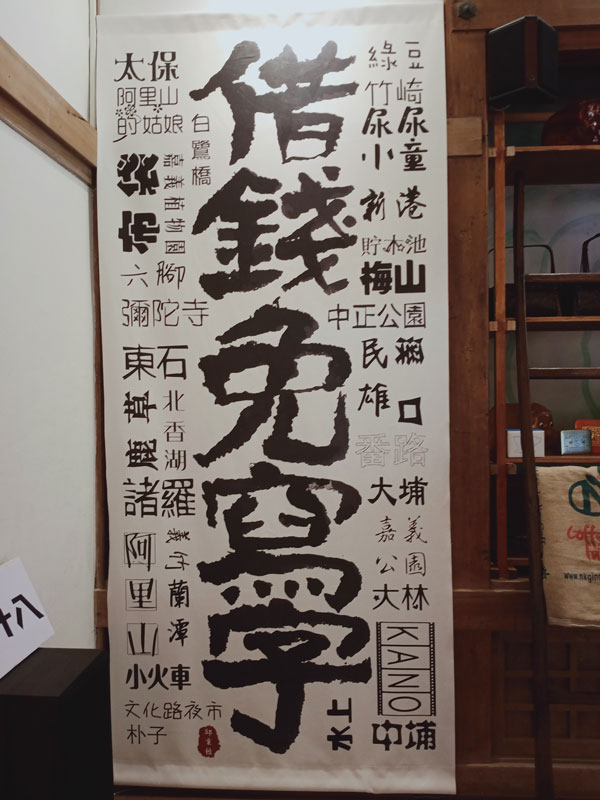 借錢免寫字
太保
阿里山
的姑娘
白鷺橋
布袋
嘉義植物園
六腳
彌陀寺
東石
鹿草
北香湖
諸羅
阿里山
義竹
蘭潭
小火車
文化路夜市
朴子
綠豆
竹崎
尿尿
小童
新港
貯木池
梅山
中正公園
民雄
口
番路
大埔
嘉義
公園
大林
KANO
水上
中埔
八
Coffee